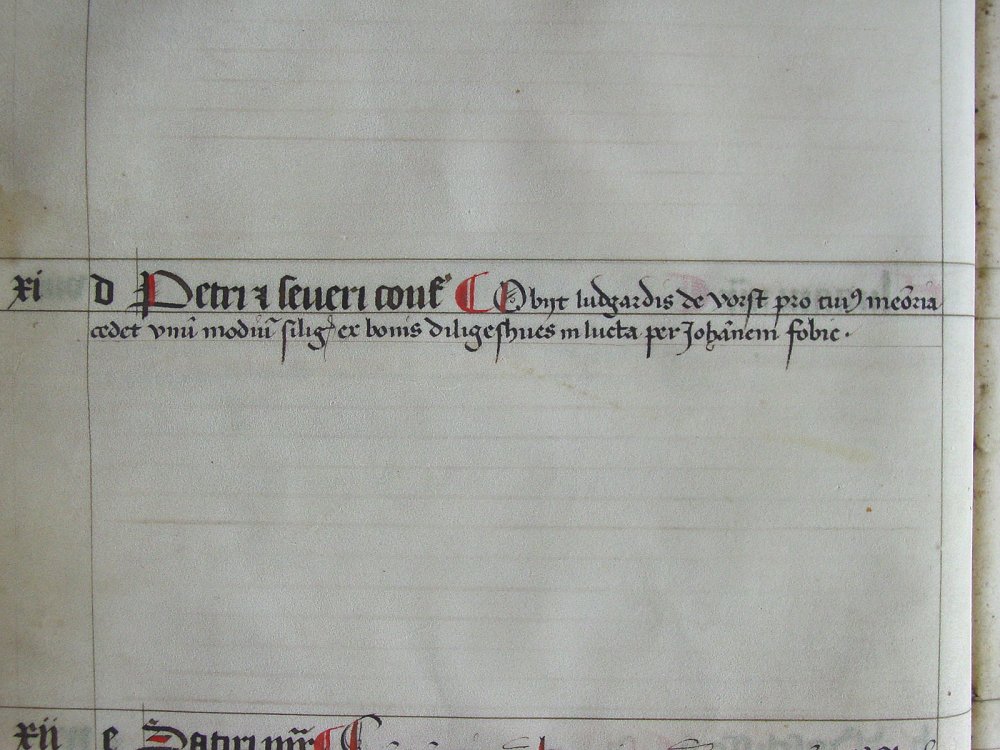 xi d Petri ⁊ seueri conf̉ Obijt ludgardis de vorst pro cuiꝰ meōria
cedet vnū modiū silig̉ ex bonis diligeshues in lucta per Johānem fobic ·
xii e Satiri mr̄